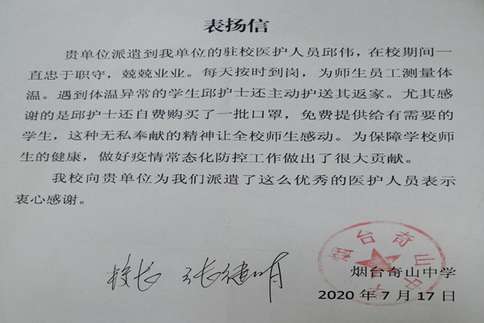 表扬信
贵单位派遣到我单位的驻校医护人员邱伟，在校期间一
直忠于职守，兢兢业业。每天按时到岗，为师生员工测量体
温。遇到体温异常的学生邱护士还主动护送其返家。尤其感
谢的是邱护士还自费购买了一批口罩，免费提供给有需要的
学生，这种无私奉献的精神让全校师生感动。为保障学校师
生的健康，做好疫情常态化防控工作做出了很大贡献。
我校向贵单位为我们派遣了这么优秀的医护人员表示
衷心感谢。
校长 张建明
烟台奇山中学
烟台奇山中学
2020 年 7 月 17 日